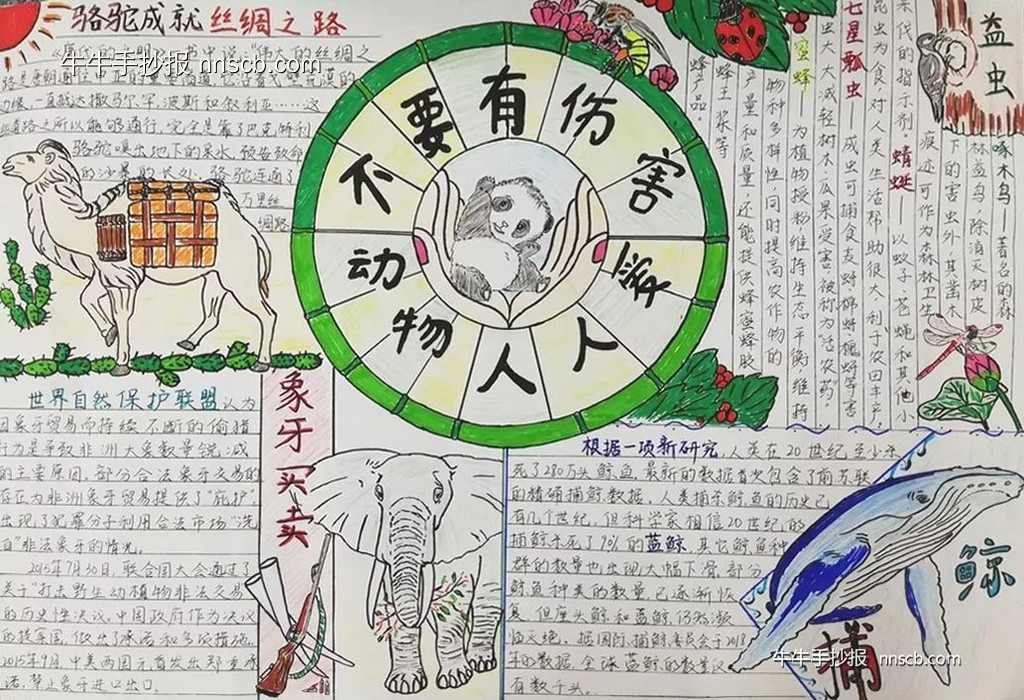 骆驼成就丝绸之路
牛牛手抄报 nnscb.com
一直抵达撒马尔罕,波斯和叙利亚……这
道路之所以能够通行,完全是靠了巴克特利
骆驼嗅出地下的泉水,预告致命
骆驼连通了
万里丝
绸路
不要有伤害
动物人人爱
益虫
啄木鸟——著名的森
林益鸟,除消灭树皮
下的害虫外,其凿木
痕迹可作为森林卫生
蜻蜓——以蚊子、苍蝇和其他小
昆虫为食,对人类生活帮助很大,利于农田丰产。
七星瓢虫——成虫可捕食麦蚜、棉蚜、槐蚜等害
虫大大减轻树木、瓜果受害,被称为“活农药”。
蜜蜂——为植物授粉,维持生态平衡,维持
物种多样性,同时提高农作物的
产量和质量,还能提供蜂蜜、蜂胶、
蜂王浆等
蜂产品。
世界自然保护联盟认为
因象牙贸易而持续不断的偷猎
行为是导致非洲大象数量锐减
的主要原因,部分合法象牙交易的
存在为非洲象牙贸易提供了“庇护”,
出现了犯罪分子利用合法市场“洗
白”非法象牙的情况。
2015年7月30日,联合国大会通过了
关于“打击野生动植物非法交易
的历史性决议,中国政府作为决议
2015年9月,中美两国元首发出郑重承
诺,禁止象牙进口出口。
象牙买卖
根据一项新研究,人类在20世纪至少杀
死了280万头鲸鱼,最新的数据首次包含了前苏联
的精确捕鲸数据。人类捕杀鲸鱼的历史已
有几个世纪,但科学家相信20世纪的
捕鲸杀死了90%的蓝鲸,其它鲸鱼种
群的数量也出现大幅下滑。部分
鲸鱼种类的数量已逐渐恢
复,但座头鲸和蓝鲸仍然濒
临灭绝。据国际捕鲸委员会于2018
年的数据,全球蓝鲸的数量仅
有数千头。
捕鲸
牛牛手抄报 nnscb.com